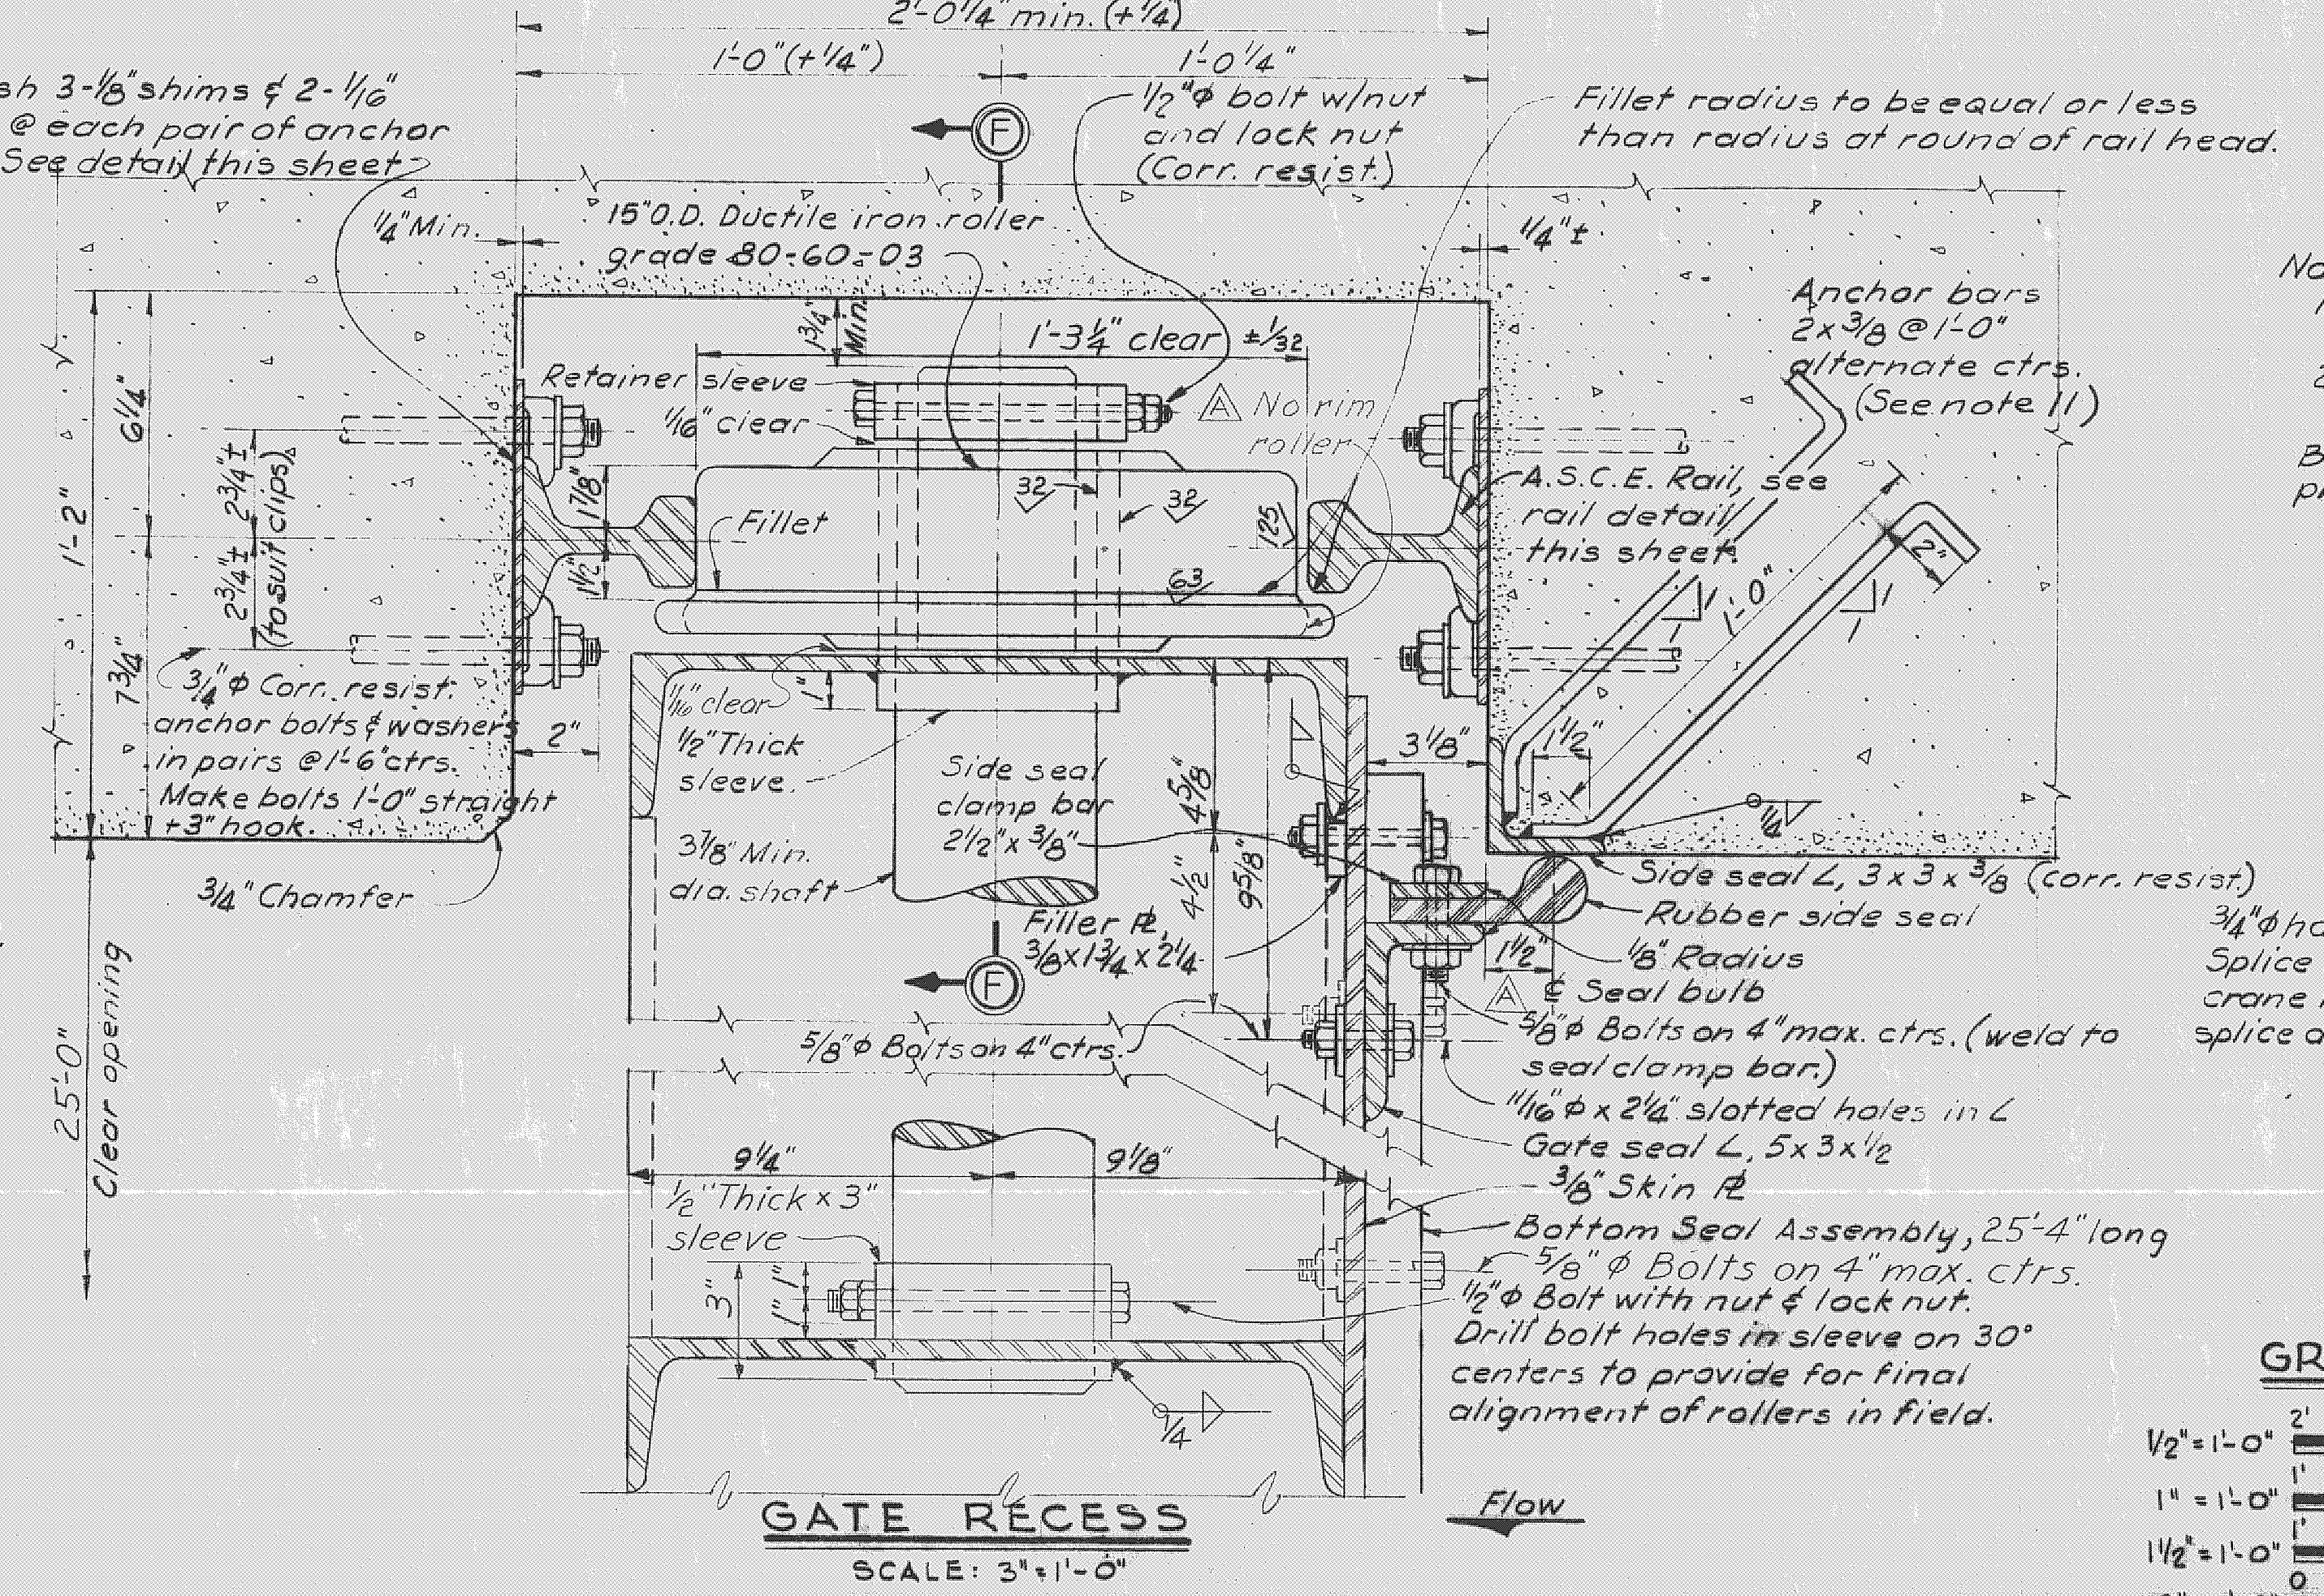 2'-0 1/4" min. (+1/4)
1'-0" (+1/4")
1'-0 1/4"
sh 3-1/8" shims & 2-1/16"
@ each pair of anchor
See detail this sheet
F
1/2"φ bolt w/nut
and lock nut
(Corr. resist.)
Fillet radius to be equal or less
than radius at round of rail head.
1/4" Min.
15" O.D. Ductile iron roller
grade 80-60-03
1/4" ±
Anchor bars
2 x 3/8 @ 1'-0"
alternate ctrs.
(See note 11)
1 3/4"
Min.
1'-3 1/4" clear ±1/32
Retainer sleeve
1/16" clear
A No rim
roller
6 1/4"
1'-2"
2 3/4" ±
2 3/4" ±
(to suit clips)
1 7/8"
1 1/2"
Fillet
32
32
125
63
A.S.C.E. Rail, see
rail detail
this sheet.
1'-0"
2"
1
1
1
1
7 3/4"
3/4" φ Corr. resist.
anchor bolts & washers
in pairs @ 1'-6" ctrs.
Make bolts 1'-0" straight
+3" hook.
2"
1/16" clear
1"
1/2" Thick
sleeve.
Side seal
clamp bar
2 1/2" x 3/8"
4 5/8"
3 1/8"
1 1/2"
1/4
3 7/8" Min.
dia. shaft
4 1/2"
9 5/8"
3/4" Chamfer
Side seal L, 3 x 3 x 3/8 (corr. resist.)
Rubber side seal
Filler PL,
3/8 x 1 3/4 x 2 1/4
1 1/2"
1/8" Radius
A
℄ Seal bulb
F
5/8" φ Bolts on 4" ctrs.
5/8" φ Bolts on 4" max. ctrs. (weld to
seal clamp bar.)
11/16" φ x 2 1/4" slotted holes in L
Gate seal L, 5 x 3 x 1/2
3/8" Skin PL
25'-0"
Clear opening
9 1/4"
9 1/8"
1/2" Thick x 3"
sleeve
Bottom Seal Assembly, 25'-4" long
5/8" φ Bolts on 4" max. ctrs.
1/2" φ Bolt with nut & lock nut.
Drill bolt holes in sleeve on 30°
centers to provide for final
alignment of rollers in field.
3"
1"
1"
1/4
GATE RECESS
SCALE: 3" = 1'-0"
Flow
No
2
B
3/4" φ ho
Splice
crane
splice
GR
2'
1/2" = 1'-0"
1'
1" = 1'-0"
1'
1 1/2" = 1'-0"
0